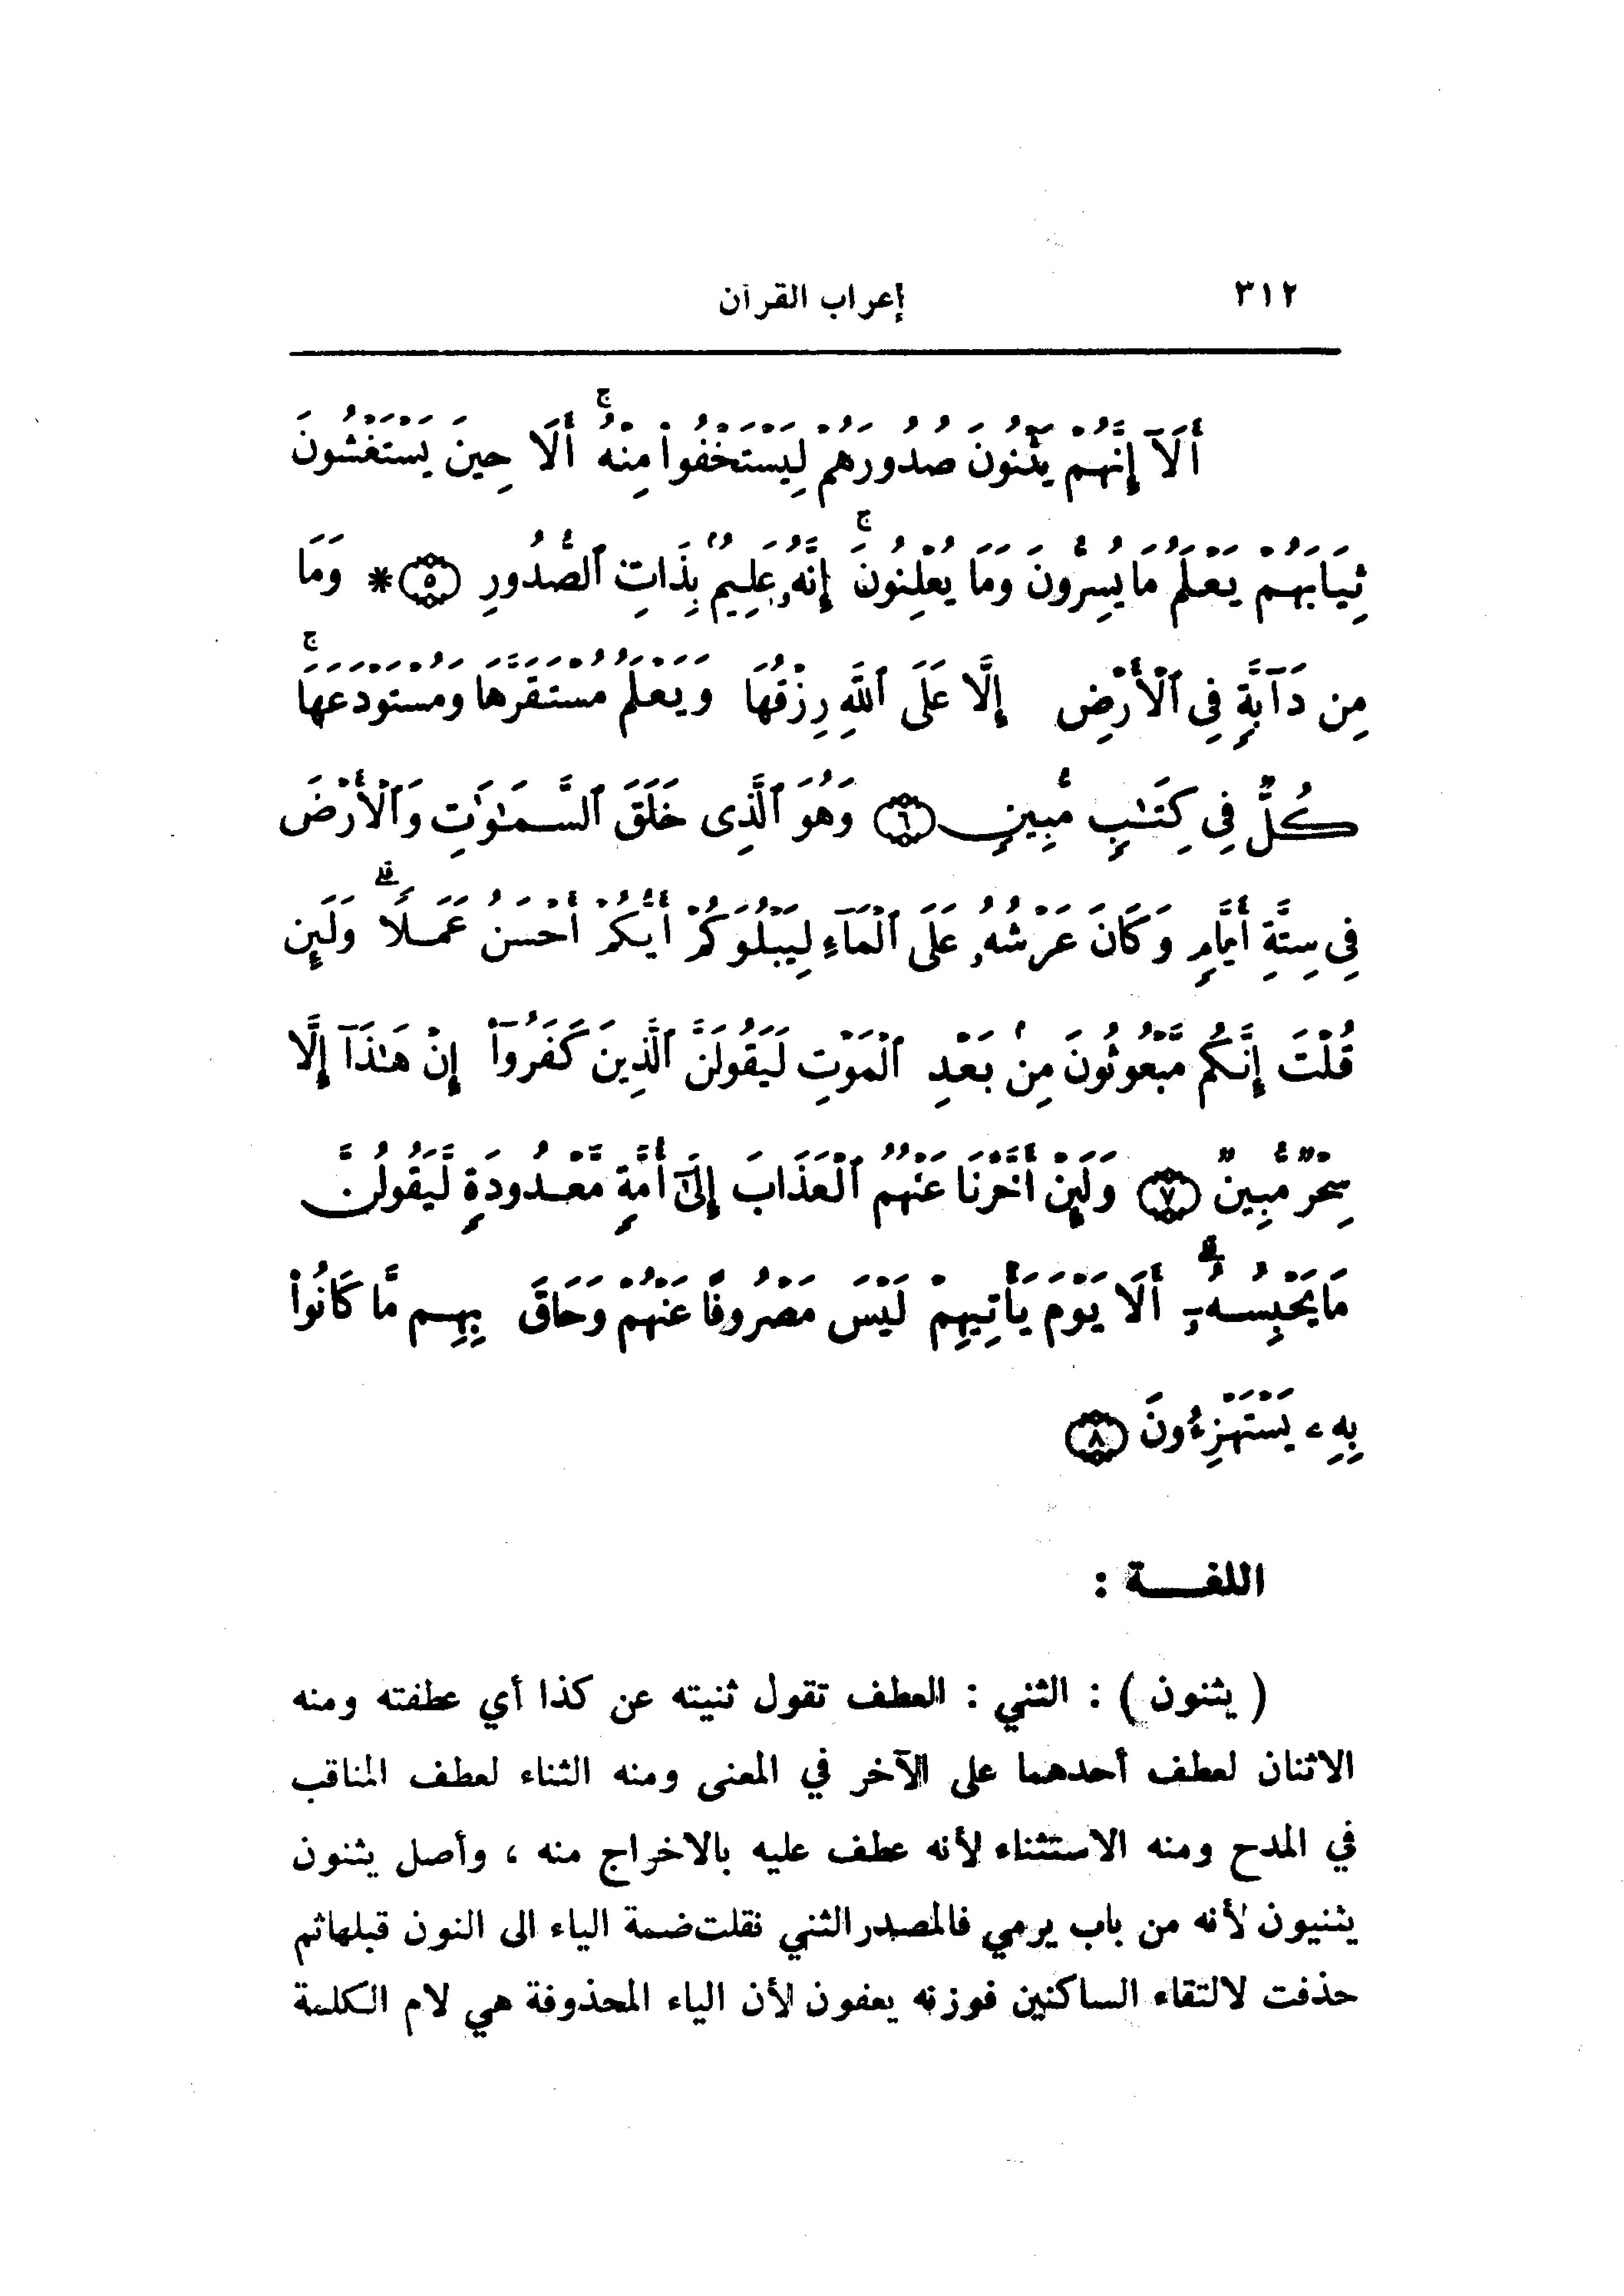 ٣١٢ إعراب القرآن
أَلَآ إِنَّهُمْ يَثْنُونَ صُدُورَهُمْ لِيَسْتَخْفُوا۟ مِنْهُ ۚ أَلَا حِينَ يَسْتَغْشُونَ
ثِيَابَهُمْ يَعْلَمُ مَا يُسِرُّونَ وَمَا يُعْلِنُونَ ۚ إِنَّهُۥ عَلِيمٌۢ بِذَاتِ ٱلصُّدُورِ ٥ * وَمَا
مِن دَآبَّةٍ فِى ٱلْأَرْضِ إِلَّا عَلَى ٱللَّهِ رِزْقُهَا وَيَعْلَمُ مُسْتَقَرَّهَا وَمُسْتَوْدَعَهَا ۚ
كُلٌّ فِى كِتَٰبٍ مُّبِينٍ ٦ وَهُوَ ٱلَّذِى خَلَقَ ٱلسَّمَٰوَٰتِ وَٱلْأَرْضَ
فِى سِتَّةِ أَيَّامٍ وَكَانَ عَرْشُهُۥ عَلَى ٱلْمَآءِ لِيَبْلُوَكُمْ أَيُّكُمْ أَحْسَنُ عَمَلًا ۗ وَلَئِن
قُلْتَ إِنَّكُم مَّبْعُوثُونَ مِنۢ بَعْدِ ٱلْمَوْتِ لَيَقُولَنَّ ٱلَّذِينَ كَفَرُوٓا۟ إِنْ هَٰذَآ إِلَّا
سِحْرٌ مُّبِينٌ ٧ وَلَئِنْ أَخَّرْنَا عَنْهُمُ ٱلْعَذَابَ إِلَىٰٓ أُمَّةٍ مَّعْدُودَةٍ لَّيَقُولُنَّ
مَا يَحْبِسُهُۥٓ ۗ أَلَا يَوْمَ يَأْتِيهِمْ لَيْسَ مَصْرُوفًا عَنْهُمْ وَحَاقَ بِهِم مَّا كَانُوا۟
بِهِۦ يَسْتَهْزِءُونَ ٨
اللغـــة :
( يثنون ) : الثني : العطف تقول ثنيته عن كذا أي عطفته ومنه
الاثنان لعطف أحدهما على الآخر في المعنى ومنه الثناء لعطف المناقب
في المدح ومنه الاستثناء لأنه عطف عليه بالاخراج منه ، وأصل يثنون
يثنيون لأنه من باب يرمي فالمصدر الثني نقلت ضمة الياء الى النون قبلها ثم
حذفت لالتقاء الساكنين فوزنه يعفون لأن الياء المحذوفة هي لام الكلمة